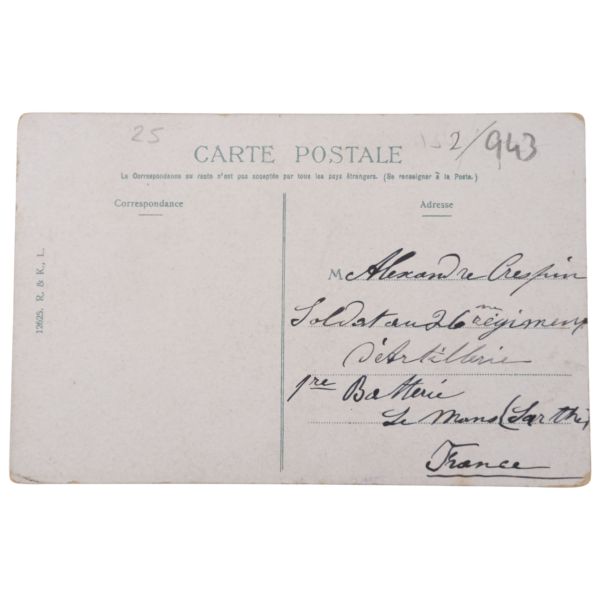 25
2/943
CARTE POSTALE
La Correspondance au recto n'est pas acceptée par tous les pays étrangers. (Se renseigner à la Poste.)
Correspondance
Adresse
12625. R. & K., L.
M Alexandre Crespin
Soldat au 26me régiment
d'Artillerie
1re Batterie
Le Mans (Sarthe)
France